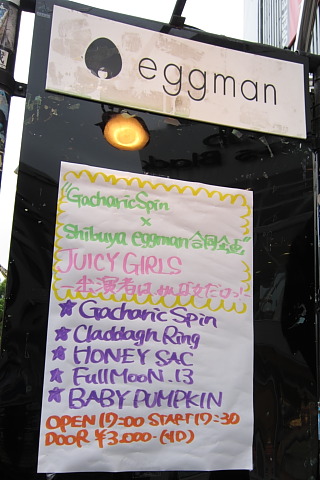 eggman
"Gacharic Spin
×
Shibuya eggman 合同企画"
JUICY GIRLS
ー出演者はみんな女だよっ!ー
★ Gacharic Spin
★ Claddagh Ring
★ HONEY SAC
★ FullMooN.13
★ BABY PUMPKIN
OPEN 17:00 START 17:30
DOOR ¥3,000-(1D)